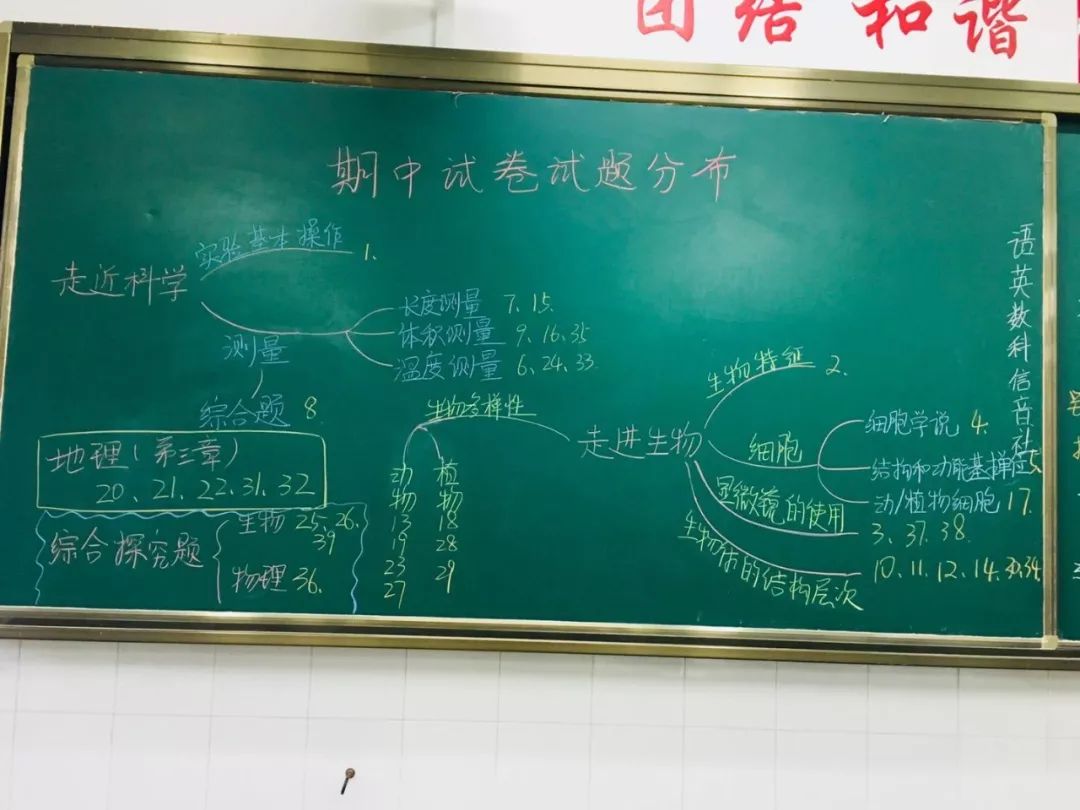 团结 和谐
期中试卷试题分布
走近科学
实验基本操作 1.
测量
长度测量 7、15.
体积测量 9、16、35
温度测量 6、24、33.
综合题 8.
地理(第三章)
20、21、22、31、32
综合探究题
生物 25、26、
39
物理 36.
走进生物
生物多样性
动物
13
19
23
27
植物
18
28
29
生物特征 2.
细胞
细胞学说 4.
结构和功能基本单位5.
动/植物细胞 17.
显微镜的使用
3、37、38.
生物体的结构层次
10、11、12、14、30、34.
语英数科信音社